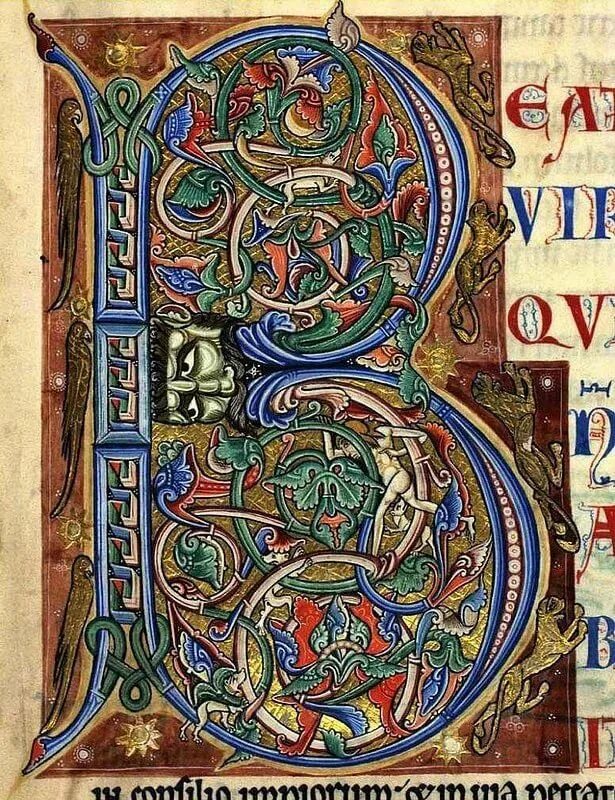 B
EAT
VIR
QV
N
A
B
I
in consilio impiorum· & in uia peccat